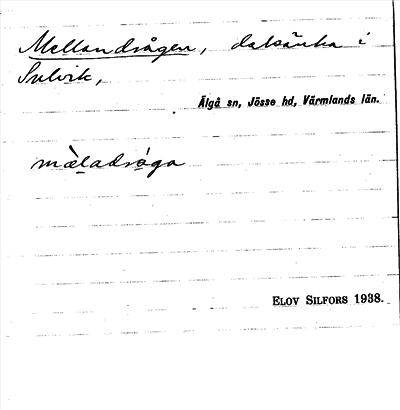 Mellandrågen, dalsänka i
Sulvik,
Älgå sn, Jösse hd, Värmlands län.
mèladrǻga
ELOV SILFORS 1938.